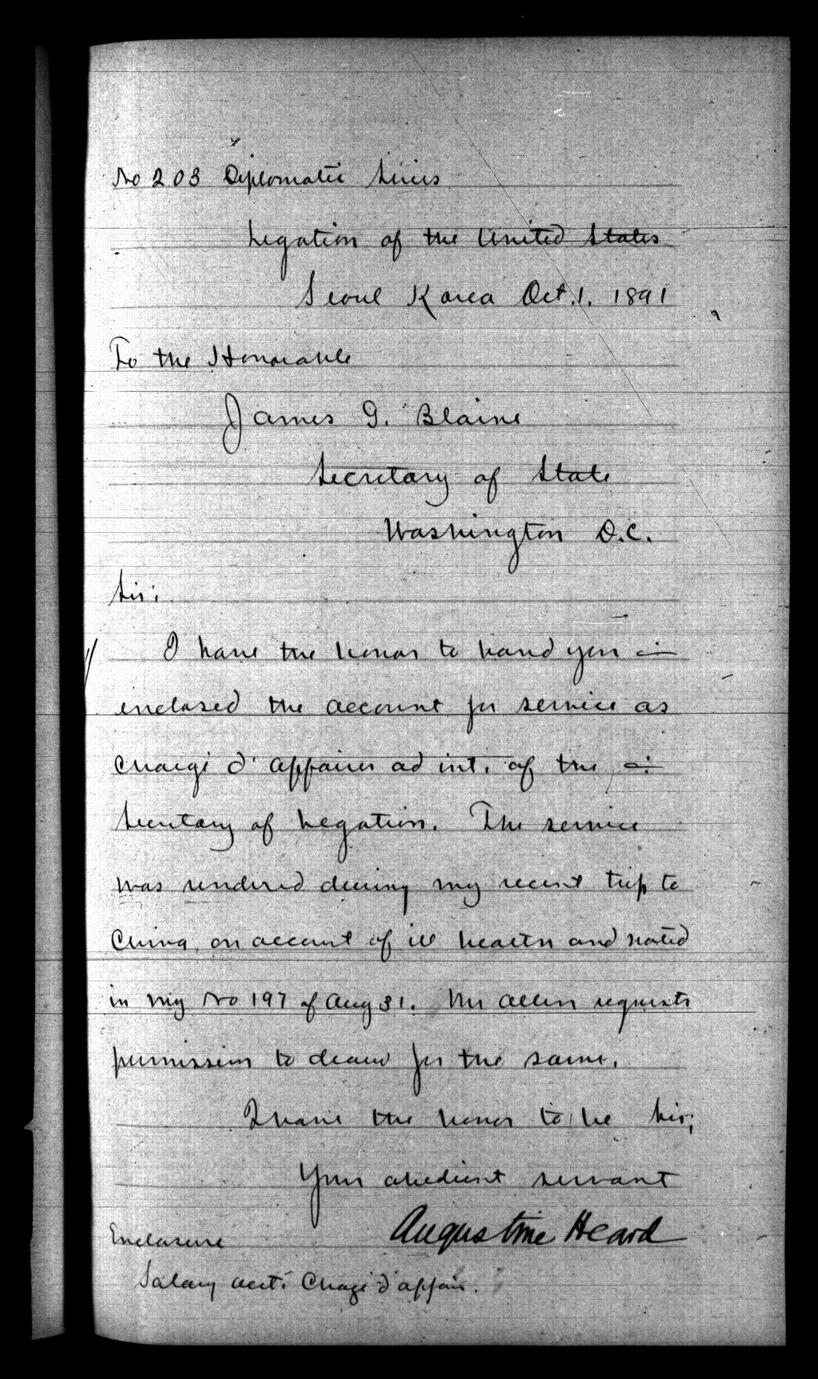 No 203 Diplomatic Series
Legation of the United States
Seoul Korea Oct. 1. 1891
To the Honorable
James G. Blaine
Secretary of State
Washington D.C.
Sir:
I have the honor to hand you
enclosed the account for service as
Chargé d'Affaires ad int. of the
Secretary of Legation. The service
was rendered during my recent trip to
China, on account of ill health and noted
in my No 197 of Aug 31. Mr Allen requests
permission to draw for the same.
I have the honor to be Sir;
Your obedient servant
Augustine Heard
Enclosure
Salary acct. Chargé d'affair.